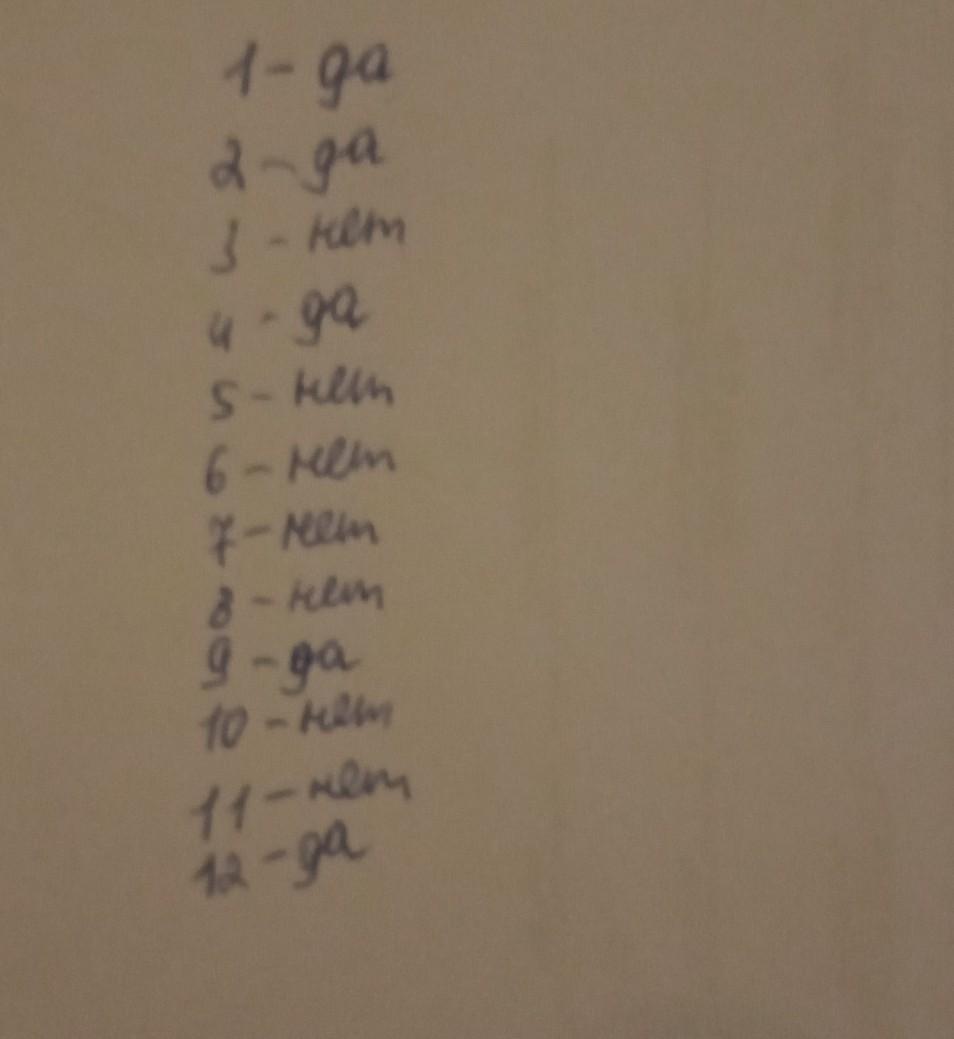 1 - да
2 - да
3 - нет
4 - да
5 - нет
6 - нет
7 - нет
8 - нет
9 - да
10 - нет
11 - нет
12 - да